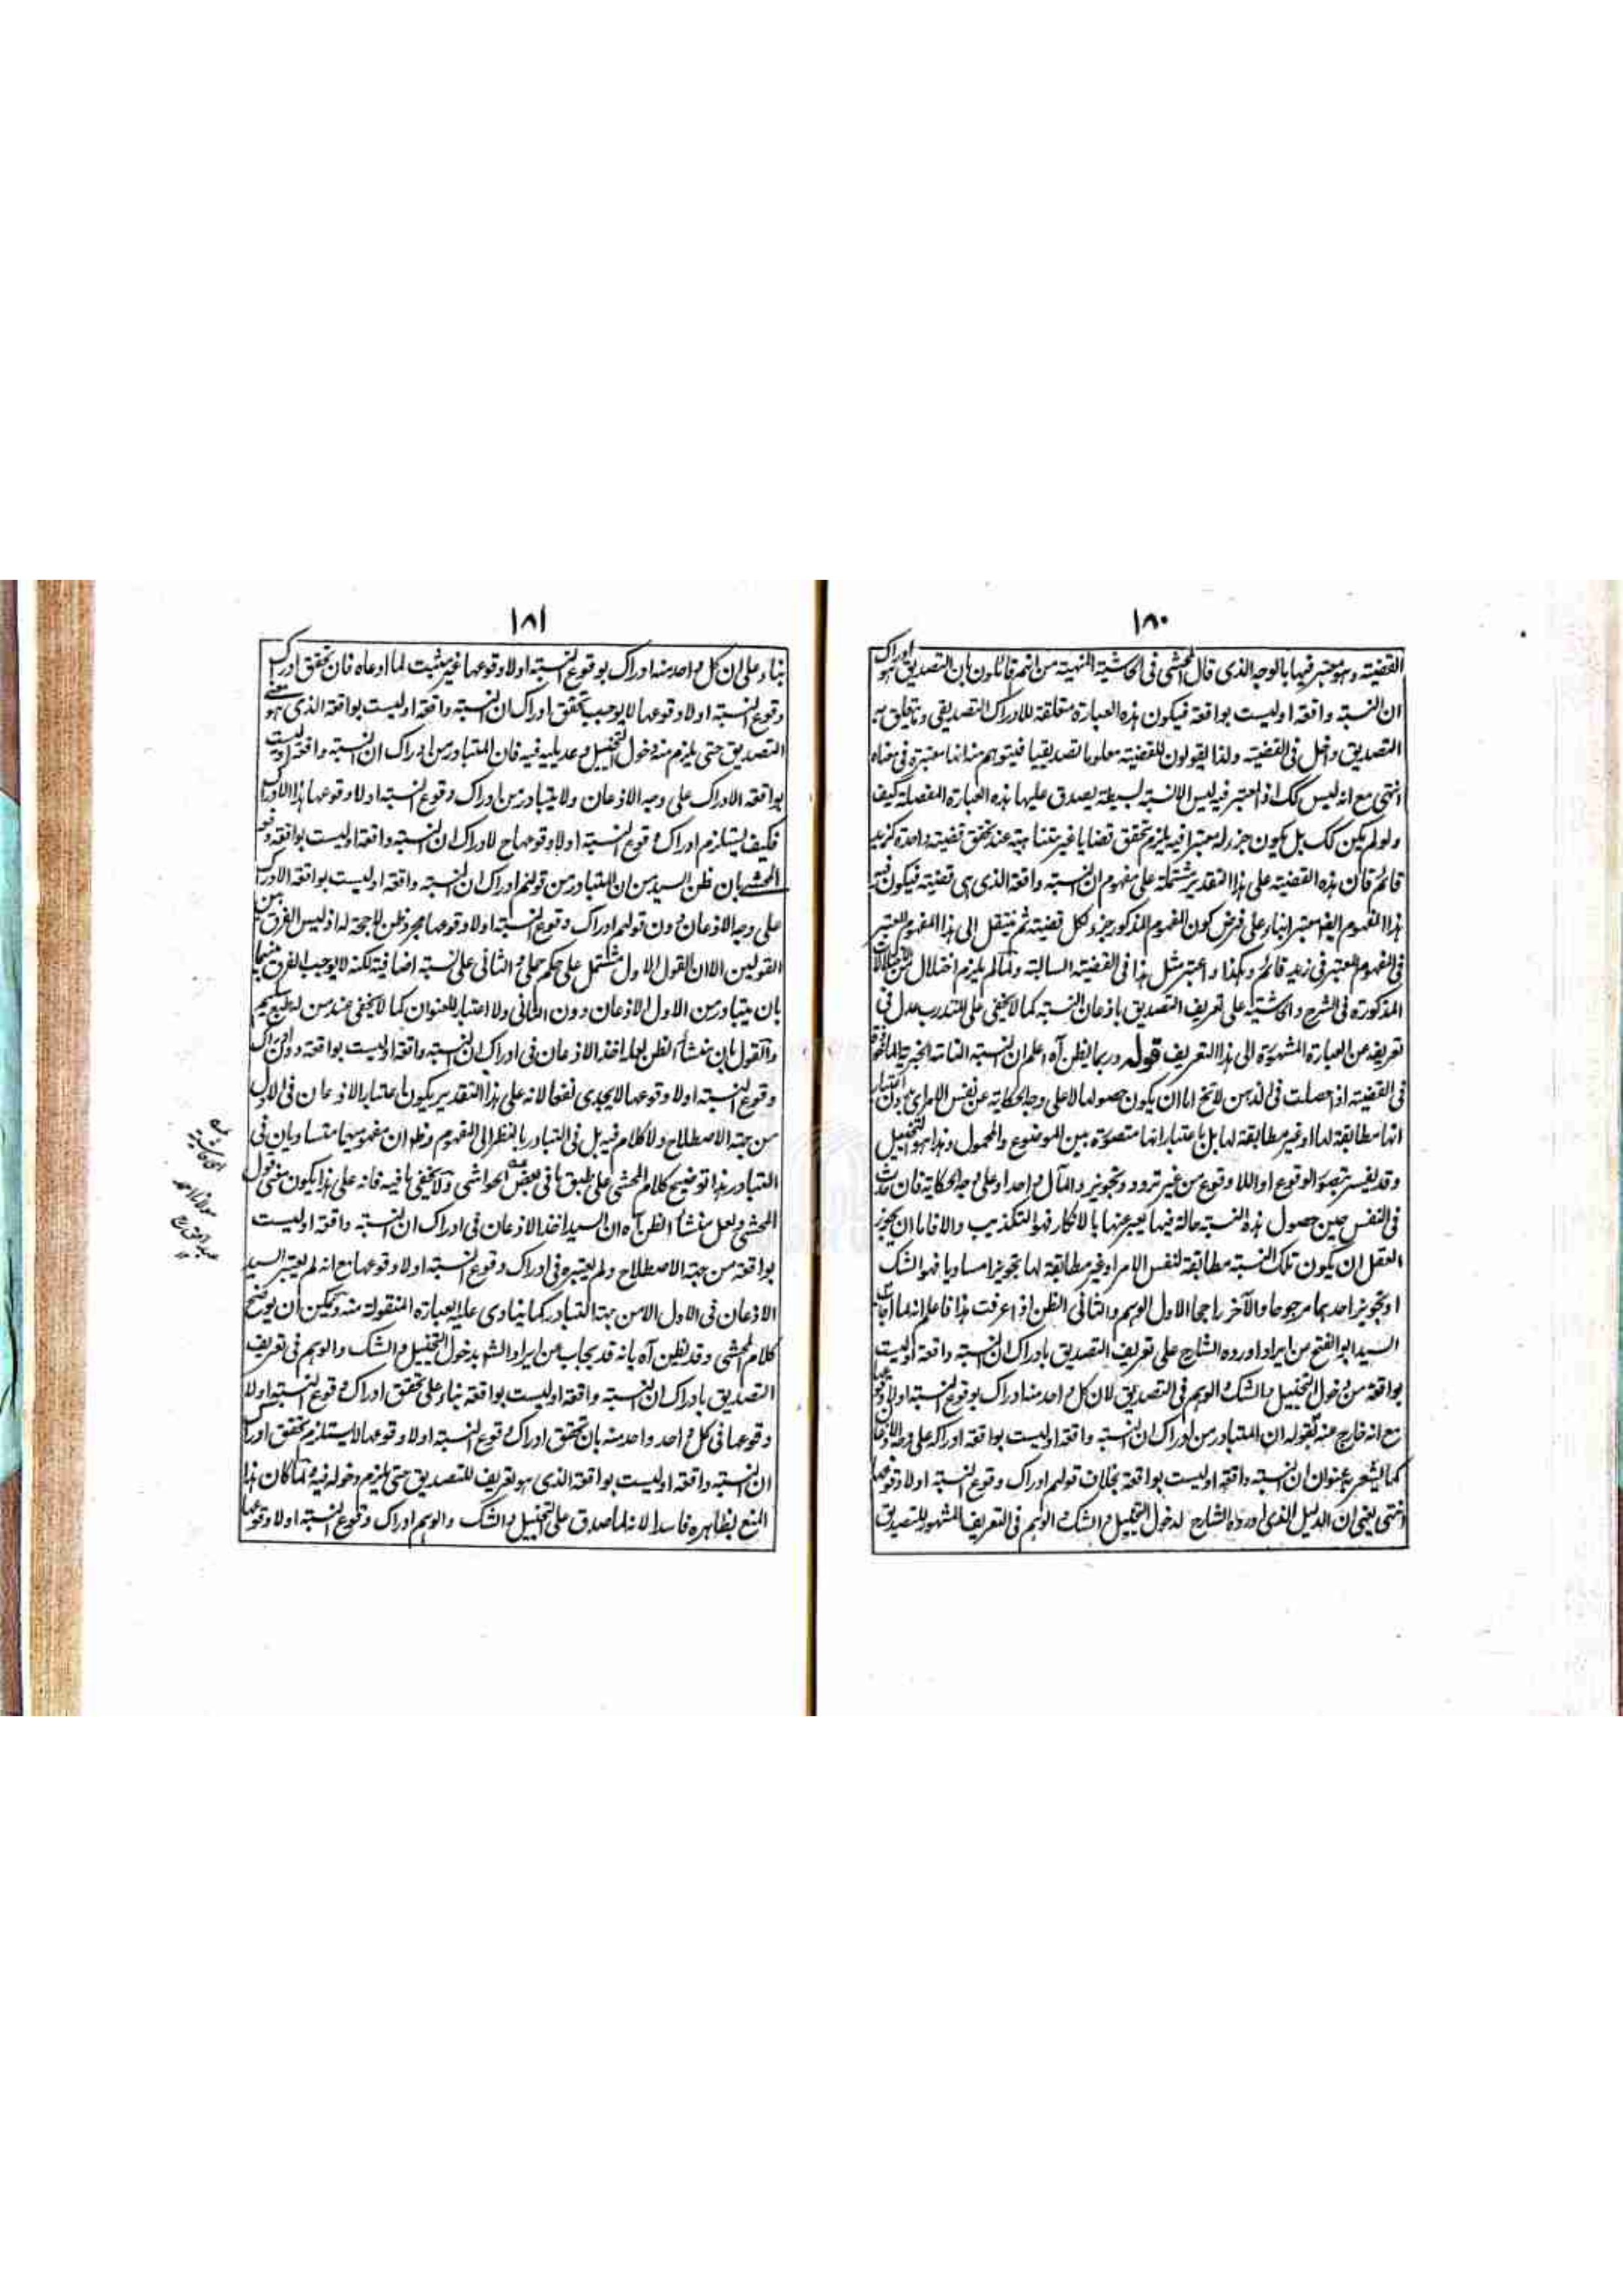 ١٨٠
القضيته وهو معتبر فيها بالوجه الذى قال المحشى فى الحاشية المنهية من انهم قائلون بان التصديق هو ادراك
ان النسبته واقعة او ليست بواقعة فيكون هذه العبارة متعلقه للادراك التصديقى وما يتعلق به
التصديق داخل فى القضيته ولذا يقولون للقضيته معلوما تصديقيا فيتوهم منه انها معتبرة فى معناه
انتهى مع انه ليس كك اذ المعتبر فيه ليس الا نسبته بسيطة يصدق عليها هذه العبارة المفصلة كيف
ولو لم يكن كك بل يكون جزء له معتبرا فيه يلزم تحقق قضايا غير متناهية عند تحقق قضيته واحدة كزيد
قائم فان هذه القضيته على هذا التقدير مشتملة على مفهوم ان النسبته واقعة الذى هى قضيته فيكون فيه
هذا المفهوم ايضا معتبرا بناء على فرض كون المفهوم المذكور جزء لكل قضيته ثم ينتقل الى هذا المفهوم المعتبر
فى المفهوم المعتبر فى زيد قائم وهكذا واعتبر مثل هذا فى القضيته السالبته ولما لم يلزم اختلال من الاختلالات
المذكورة فى الشرح والحاشية على تعريف التصديق باذعان النسبته كما لا يخفى على المتدرب عدل فى
تعريفه عن العبارة المشهورة الى هذا التعريف قوله وربما يظن آه اعلم ان النسبته التامة الخبرية الماخوذة
فى القضيته اذا حصلت فى الذهن لا تخ اما ان يكون حصولها لا على وجه الحكاية عن نفس الامر اى بدون اعتبار
انها مطابقة لها او غير مطابقة لها بل باعتبار انها متصورة بين الموضوع والمحمول وهذا هو التخييل
وقد يفسر بتصور الوقوع او اللا وقوع من غير تردد وتجويز والمآل واحد او على وجه الحكاية فان حدثت
فى النفس حين حصول هذه النسبته حالة فيها يعبر عنها بالانكار فهو التكذيب والا فاما ان يجوز
العقل ان يكون تلك النسبته مطابقة لنفس الامر او غير مطابقة لها تجويزا مساويا فهو الشك
او تجويز احدهما مرجوحا والآخر راجحا الاول الوهم والثانى الظن اذا عرفت هذا فاعلم انه لما اجاب
السيد ابو الفتح من ايراد اورده الشارح على تعريف التصديق بادراك ان النسبته واقعة او ليست
بواقعة من دخول التخييل والشك والوهم فى التصديق لان كل واحد منه ادراك بوقوع النسبته او لا وقوعها
مع انه خارج عنه بقوله ان المتبادر من ادراك ان النسبته واقعة او ليست بواقعة ادراكه على وجه الاذعان
كما يشعر به عنوان ان النسبته واقعة او ليست بواقعة بخلاف قولهم ادراك وقوع النسبته او لا وقوعها
انتهى يعنى ان الدليل الذى اورده الشارح لدخول التخييل والشك والوهم فى التعريف المشهور للتصديق
١٨١
بناء على ان كل واحد منه ادراك بوقوع النسبته او لا وقوعها غير مثبت لما ادعاه فان تحقق ادراك
وقوع النسبته او لا وقوعها لا يوجب تحقق ادراك ان النسبته واقعة او ليست بواقعة الذى هو معنى
التصديق حتى يلزم منه دخول التخييل وعديليه فيه فان المتبادر من ادراك ان النسبته واقعة او ليست
بواقعة الادراك على وجه الاذعان ولا يتبادر من ادراك وقوع النسبته او لا وقوعها هذا الادراك
فكيف يستلزم ادراك وقوع النسبته او لا وقوعها ح لادراك ان النسبته واقعة او ليست بواقعة دفعه
المحشى بان ظن السيد من ان المتبادر من قولهم ادراك ان النسبته واقعة او ليست بواقعة الادراك
على وجه الاذعان دون قولهم ادراك وقوع النسبته او لا وقوعها مجرد ظن لا حجة له اذ ليس الفرق بين
القولين الا ان القول الاول مشتمل على حكم حملى والثانى على نسبته اضافية لكنه لا يوجب الفرق بينهما
بان يتبادر من الاول الاذعان دون الثانى ولا اعتبار للعنوان كما لا يخفى عند من له طبع سليم
والقول بان منشأ الظن لعله اخذ الاذعان فى ادراك ان النسبته واقعة او ليست بواقعة دون ادراك
وقوع النسبته او لا وقوعها لا يجدى نفعا لانه على هذا التقدير يكون اعتبار الاذعان فى الاول
من جهة الاصطلاح ولا كلام فيه بل فى التبادر بالنظر الى المفهوم وظ ان مفهوميهما متساويان فى
التبادر هذا توضيح كلام المحشى على طبق ما فى بعض الحواشى ولا يخفى ما فيه فانه على هذا يكون معنى قول
المحشى ولعل منشأ الظن آه ان السيد اخذ الاذعان فى ادراك ان النسبته واقعة او ليست
بواقعة من جهة الاصطلاح ولم يعتبره فى ادراك وقوع النسبته او لا وقوعها مع انه لم يعتبر السيد
الاذعان فى الاول الا من جهة التبادر كما ينادى عليه العبارة المنقولة منه ويمكن ان يوضح
كلام المحشى وقد يظن آه بانه قد يجاب عن ايراد الشم بدخول التخييل والشك والوهم فى تعريف
التصديق بادراك ان النسبته واقعة او ليست بواقعة بناء على تحقق ادراك وقوع النسبته او لا
وقوعها فى كل واحد واحد منه بان تحقق ادراك وقوع النسبته او لا وقوعها لا يستلزم تحقق ادراك
ان النسبته واقعة او ليست بواقعة الذى هو تعريف للتصديق حتى يلزم دخوله فيه ولما كان هذا
المنع بظاهره فاسدا لانه لما صدق على التخييل والشك والوهم ادراك وقوع النسبته او لا وقوعها